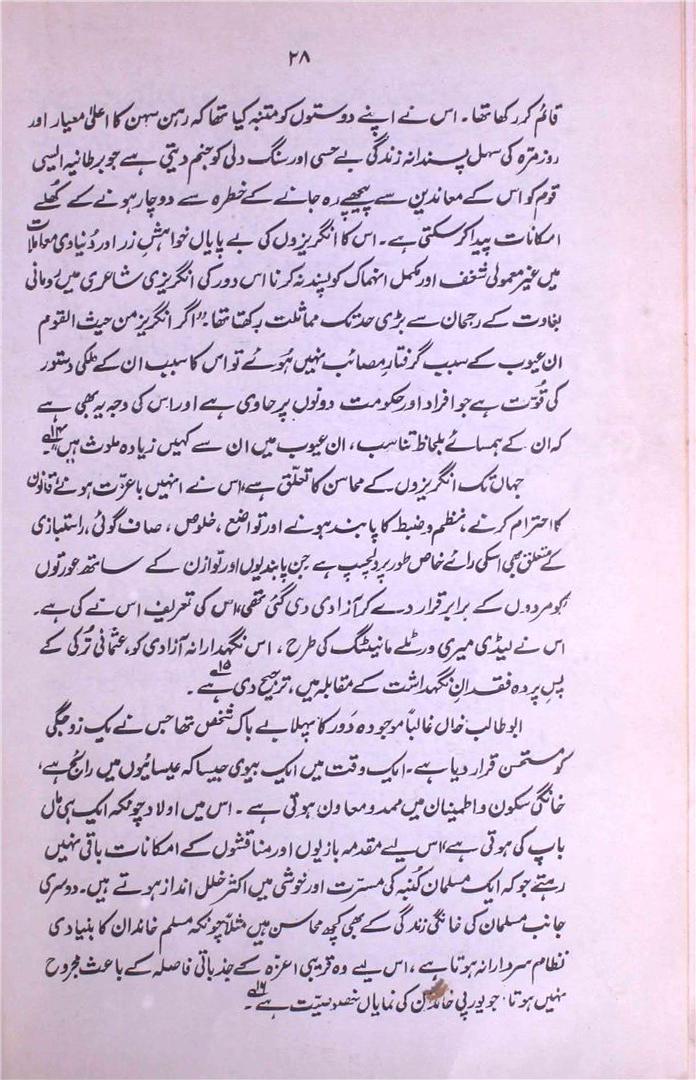 ۲۸
قائم کر رکھا تھا۔ اس نے اپنے دوستوں کو متنبہ کیا تھا کہ رہن سہن کا اعلیٰ معیار اور
روزمرّہ کی سہل پسندانہ زندگی بے حسی اور سنگ دلی کو جنم دیتی ہے جو برطانیہ ایسی
قوم کو اس کے معاندین سے پیچھے رہ جانے کے خطرہ سے دوچار ہونے کے کھُلے
امکانات پیدا کر سکتی ہے۔ اس کا انگریزوں کی بے پایاں خواہشِ زر اور دُنیاوی معاملات
میں غیر معمولی شغف اور مکمل انہماک کو پسند نہ کرنا اس دور کی انگریزی شاعری میں رُومانی
بغاوت کے رجحان سے بڑی حد تک مماثلت رکھتا تھا۔ "اگر انگریز من حیث القوم
ان عیوب کے سبب گرفتارِ مصائب نہیں ہُوئے تو اس کا سبب ان کے ملکی دستور
کی قوّت ہے جو افراد اور حکومت دونوں پر حاوی ہے اور اس کی وجہ یہ بھی ہے
کہ ان کے ہمسائے بلحاظ تناسب، ان عیوب میں ان سے کہیں زیادہ ملوث ہیں"۱۴؎
جہاں تک انگریزوں کے محاسن کا تعلّق ہے، اس نے انہیں باعزّت ہونے، قانون
کا احترام کرنے، نظم و ضبط کا پابند ہونے اور تواضع، خلوص، صاف گوئی، راستبازی
کے متعلق بھی اسکی رائے خاص طور پر دلچسپ ہے جن پابندیوں اور توازن کے ساتھ عورتوں
کو مردوں کے برابر قرار دے کر آزادی دی گئی تھی، اس کی تعریف اس نے کی ہے۔
اس نے لیڈی میری ورٹلے مانیٹنگ کی طرح، اس نگہدارانہ آزادی کو، عثمانی تُرکی کے
پسِ پردہ فقدانِ نگہداشت کے مقابلہ میں، ترجیح دی ہے۱۵؎۔
ابو طالب خاں غالباً موجودہ دَور کا پہلا بے باک شخص تھا جس نے یک زوجگی
کو مستحسن قرار دیا ہے۔ ایک وقت میں ایک بیوی جیسا کہ عیسائیوں میں رائج ہے،
خانگی سکون و اطمینان میں ممد و معاون ہوتی ہے۔ اس میں اولاد چونکہ ایک ہی ماں
باپ کی ہوتی ہے، اس لیے مقدمہ بازیوں اور مناقشوں کے امکانات باقی نہیں
رہتے جو کہ ایک مسلمان کُنبہ کی مسرّت اور خوشی میں اکثر خلل انداز ہوتے ہیں۔ دوسری
جانب مسلمان کی خانگی زندگی کے بھی کچھ محاسن ہیں مثلاً چونکہ مسلم خاندان کا بنیادی
نظام سردارانہ ہوتا ہے، اس لیے وہ قریبی اعزہ کے جذباتی فاصلہ کے باعث مجروح
نہیں ہوتا، جو یورپی خاندان کی نمایاں خصوصیّت ہے۱۶؎۔